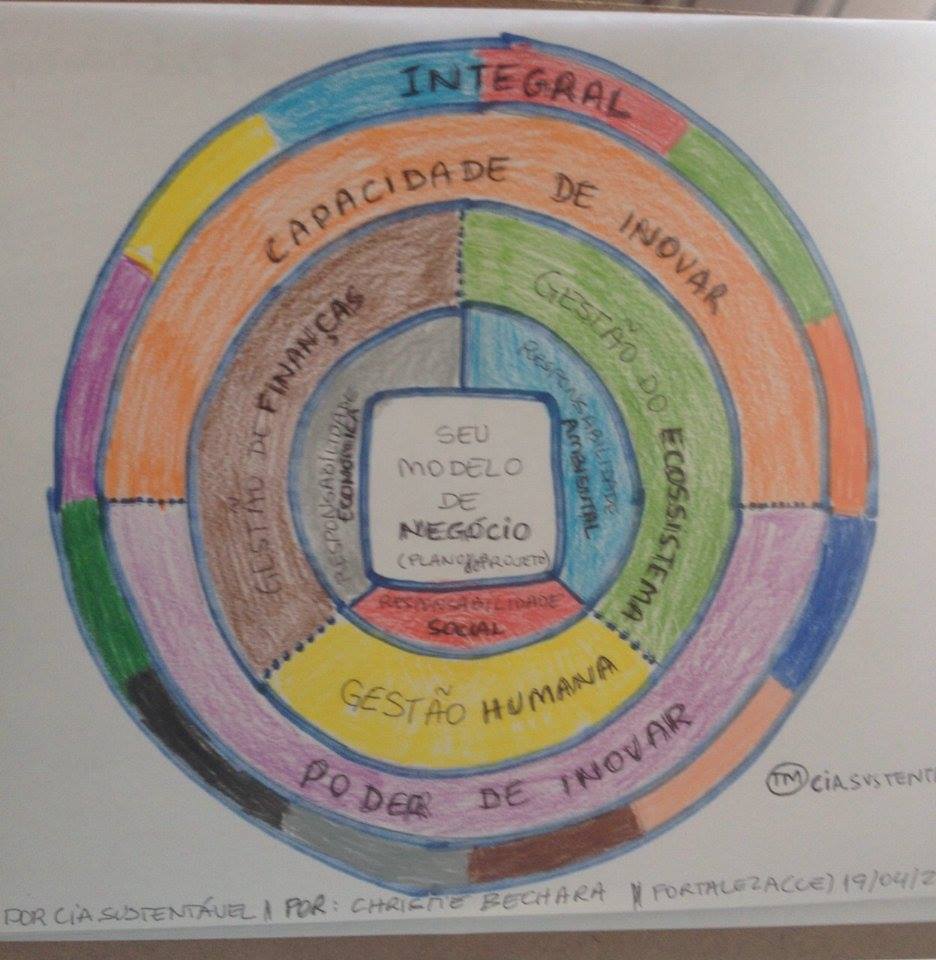 INTEGRAL
CAPACIDADE DE INOVAR
GESTÃO DE FINANÇAS
GESTÃO DO ECOSSISTEMA
RESPONSABILIDADE
ECONOMICA
RESPONSABILIDADE
AMBIENTAL
SEU
MODELO
DE
NEGÓCIO
(PLANO PROJETO)
RESPONSABILIDADE
SOCIAL
GESTÃO HUMANA
PODER DE INOVAR
TM CIA SUSTENT
POR CIA SUSTENTÁVEL POR: BECHARA FORTALEZA(CE) 19/04/2